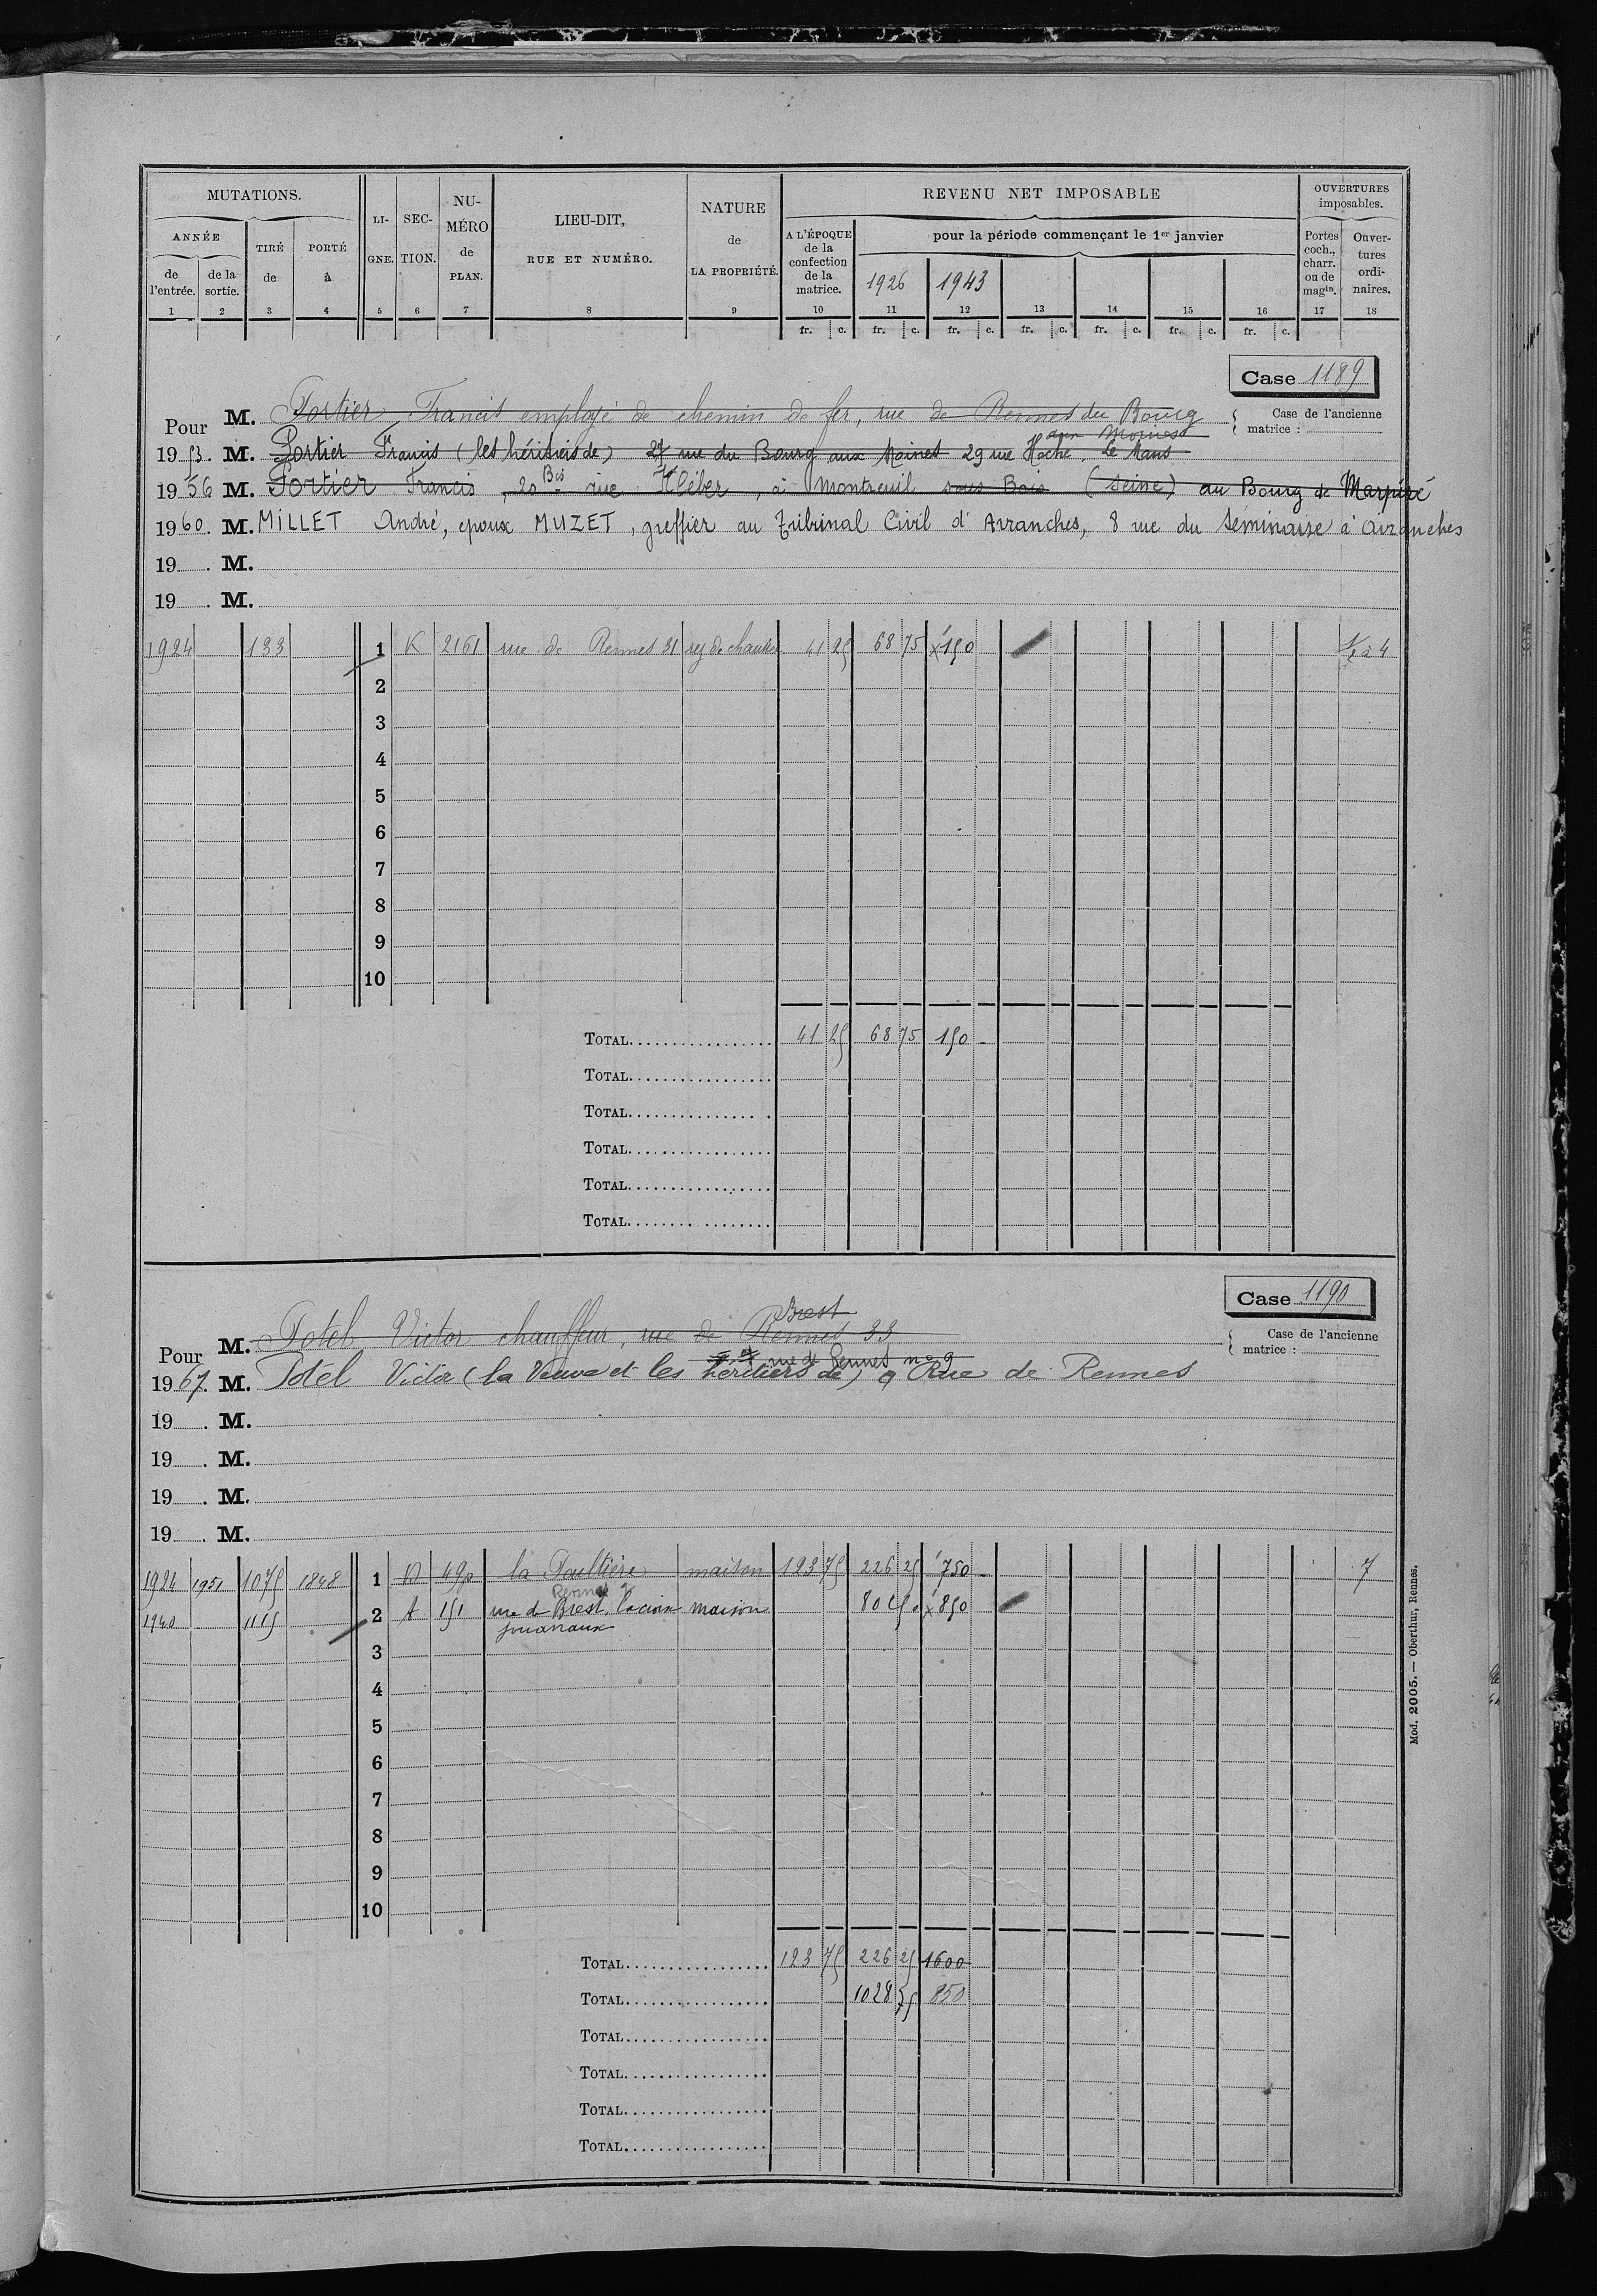 MUTATIONS.
ANNÉE
de l'entrée.
de la sortie.
TIRÉ de
PORTÉ à
LIGNE.
SECTION.
NUMÉRO de PLAN.
LIEU-DIT, RUE ET NUMÉRO.
NATURE de LA PROPRIÉTÉ.
REVENU NET IMPOSABLE
A L'ÉPOQUE de la confection de la matrice.
pour la période commençant le 1er janvier
1926 1943
OUVERTURES imposables.
Portes coch., charr. ou de magin.
Ouvertures ordinaires.
1 2 3 4 5 6 7 8 9 10 11 12 13 14 15 16 17 18
fr. c. fr. c. fr. c. fr. c. fr. c. fr. c. fr. c.
Case 1189
Pour M. Portier Francis employé de chemin de fer, rue de Rennes du Bourg
aux Moines
Case de l'ancienne matrice :
1953. M. Portier Francis (les héritiers de) 27 rue du Bourg aux Moines 29 rue Hoche. Le Mans
1956 M. Portier Francis, 20 Bis rue Kléber, à Montreuil sous Bois (Seine) au Bourg de Marpiré
1960. M. MILLET André, époux MUZET, greffier au Tribunal Civil d'Avranches, 8 rue du Séminaire à Avranches
19 . M.
19 . M.
1924 133 1 K 2161 rue de Rennes 31 rez de chaussée 41 25 68 75 x150 à 4
2
3
4
5
6
7
8
9
10
TOTAL 41 25 68 75 150
TOTAL
TOTAL
TOTAL
TOTAL
TOTAL
Case 1190
Brest
Pour M. Potel Victor chauffeur, rue de Rennes 33
rue de Rennes no 9
Case de l'ancienne matrice :
1967. M. Potel Victor (la Veuve et les héritiers de) 9 Rue de Rennes
19 . M.
19 . M.
19 . M.
19 . M.
1924 1951 1075 1848 1 49p la Paultière maison 123 75 226 25 750 7
Rennes
1940 1115 2 A 151 rue de Brest, la croix maison 80 x850
3
4
5
6
7
8
9
10
TOTAL 123 75 226 25 1600
TOTAL 1028 850
TOTAL
TOTAL
TOTAL
TOTAL
Mod. 2005. — Oberthur, Rennes.